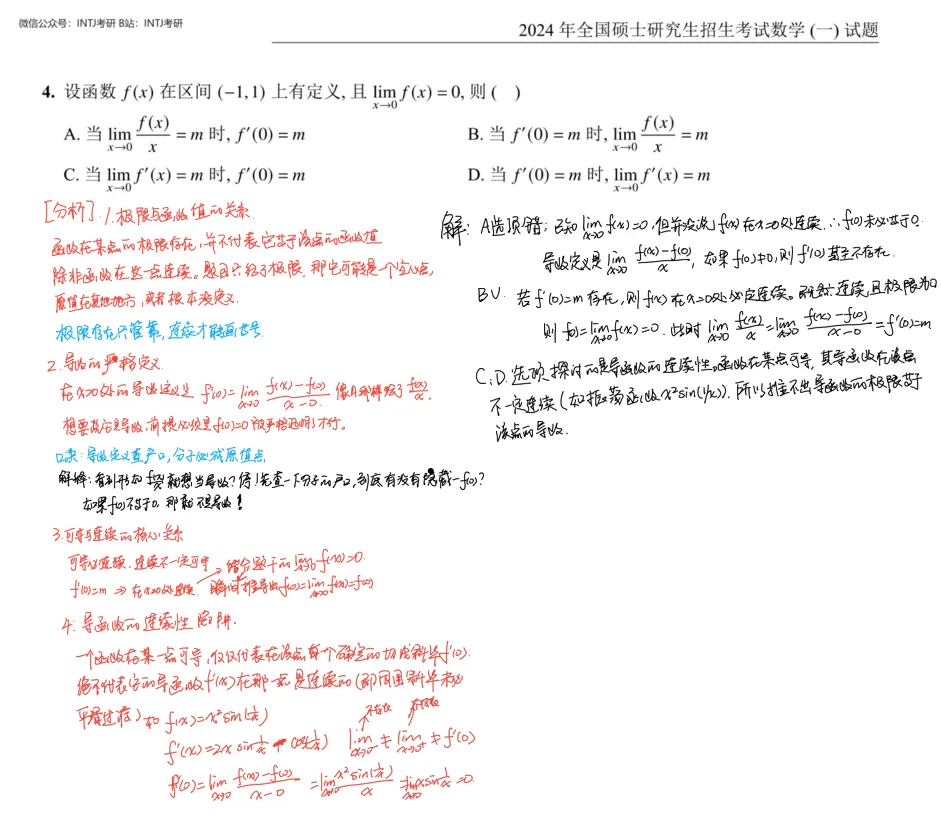 微信公众号：INTJ考研 B站：INTJ考研
2024 年全国硕士研究生招生考试数学 (一) 试题
4. 设函数 f(x) 在区间 (−1,1) 上有定义, 且 lim_{x→0} f(x) = 0, 则 ( )
A. 当 lim_{x→0} f(x)/x = m 时, f′(0) = m
B. 当 f′(0) = m 时, lim_{x→0} f(x)/x = m
C. 当 lim_{x→0} f′(x) = m 时, f′(0) = m
D. 当 f′(0) = m 时, lim_{x→0} f′(x) = m
[分析] 1. 极限与函数值的关系.
函数在某点的极限存在,并不代表它等于该点的函数值
除非函数在这一点连续。题目只给了极限,那它可能是个空心点,
原值在其他地方,或者根本没定义.
极限存在只管靠,连续才能画等号.
2. 导数的严格定义.
在x=0处的导数定义是 f′(0) = lim_{x→0} (f(x)−f(0))/(x−0). f(x)/x.
想要说它是导数,前提必须是f(0)=0 被严格证明了才行。
口诀: 导数定义查户口,分子必减原值点
解释: 看到形如 f(x)/x 就想当导数? 停! 先查一下分子的户口,到底有没有隐藏−f(0)?
如果f(0)不等于0, 那就不是导数!
3. 可导与连续的核心关系
可导必连续, 连续不一定可导 结合题干的 lim_{x→0} f(x)=0.
f′(0)=m ⇒ 在x=0处连续. 瞬间推导出f(0)=lim_{x→0} f(x)=f(0).
4. 导函数的连续性陷阱.
一个函数在某一点可导,仅仅代表在该点有个确定的切线斜率f′(0).
绝不代表它的导函数f′(x)在那一点是连续的 (即周围斜率未必
平滑过渡) 如 f(x)=x²sin(1/x)
不存在 不存在
f′(x)=2x sin 1/x − cos(1/x) lim_{x→0⁻} ≠ lim_{x→0⁺} ≠ f′(0)
f′(0)= lim_{x→0} (f(x)−f(0))/(x−0) = lim_{x→0} x²sin(1/x)/x = lim_{x→0} x sin 1/x = 0.
解: A选项错: 已知 lim_{x→0} f(x)=0, 但并没说 f(x)在x=0处连续. ∴f(0)未必等于0.
导数定义是 lim_{x→0} (f(x)−f(0))/x, 如果 f(0)≠0, 则f′(0)甚至不存在.
B√. 若 f′(0)=m 存在, 则f(x)在x=0处必定连续。既然连续,且极限为0
则 f(0)=lim_{x→0} f(x)=0. 此时 lim_{x→0} f(x)/x = lim_{x→0} (f(x)−f(0))/(x−0) = f′(0)=m
C,D. 选项探讨的是导函数的连续性。函数在某点可导, 其导函数在该点
不一定连续 (如振荡函数x²sin(1/x)). 所以推不出导函数的极限等于
该点的导数.